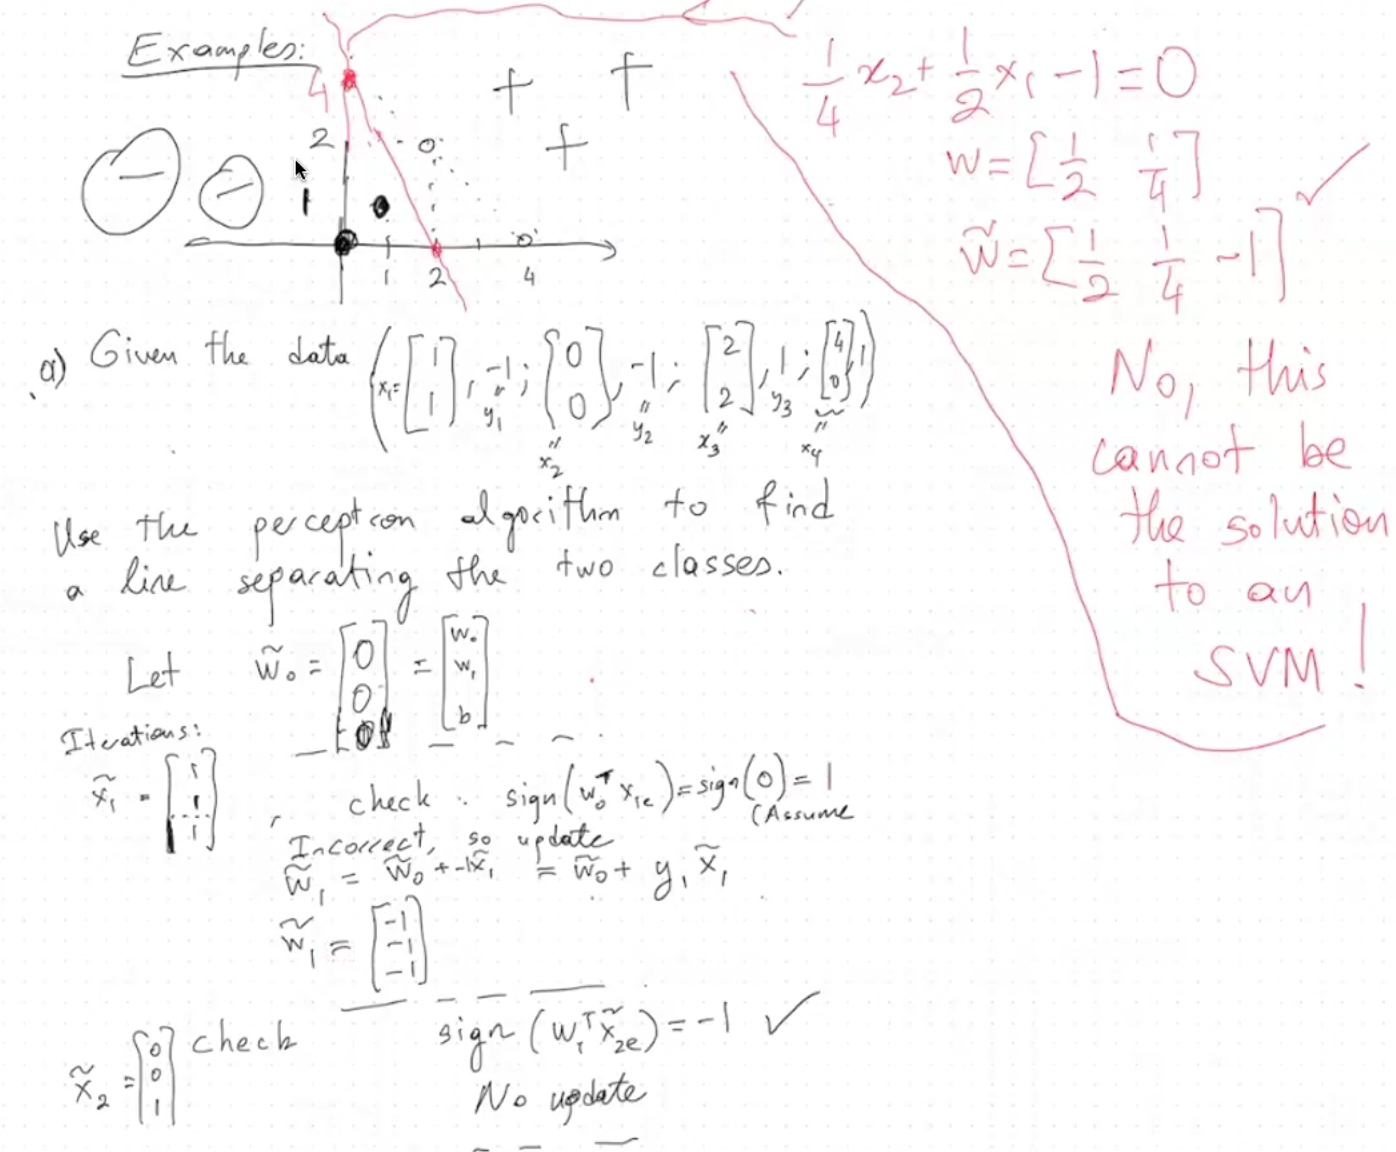 Examples:
4
2
1
1 2 4
+ + +
− −
1/4 x₂ + 1/2 x₁ − 1 = 0
w = [1/2 1/4] ✓
w̃ = [1/2 1/4 −1]
No, this
cannot be
the solution
to an
SVM!
a) Given the data (x₁= [1 1], −1; [0 0], −1; [2 2], 1; [4 0], 1)
y₁ x₂ y₂ x₃ y₃ x₄
Use the perceptron algorithm to find
a line separating the two classes.
Let w̃₀ = [0 0 0] = [w₀ w₁ b]
Iterations:
x̃₁ = [1 1 1], check: sign(w₀ᵀ x₁ₑ) = sign(0) = 1
(Assume
Incorrect, so update
w̃₁ = w̃₀ + −1x̃₁ = w̃₀ + y₁ x̃₁
w̃₁ = [−1 −1 −1]
x̃₂ = [0 0 1] check sign(w₁ᵀ x̃₂ₑ) = −1 ✓
No update